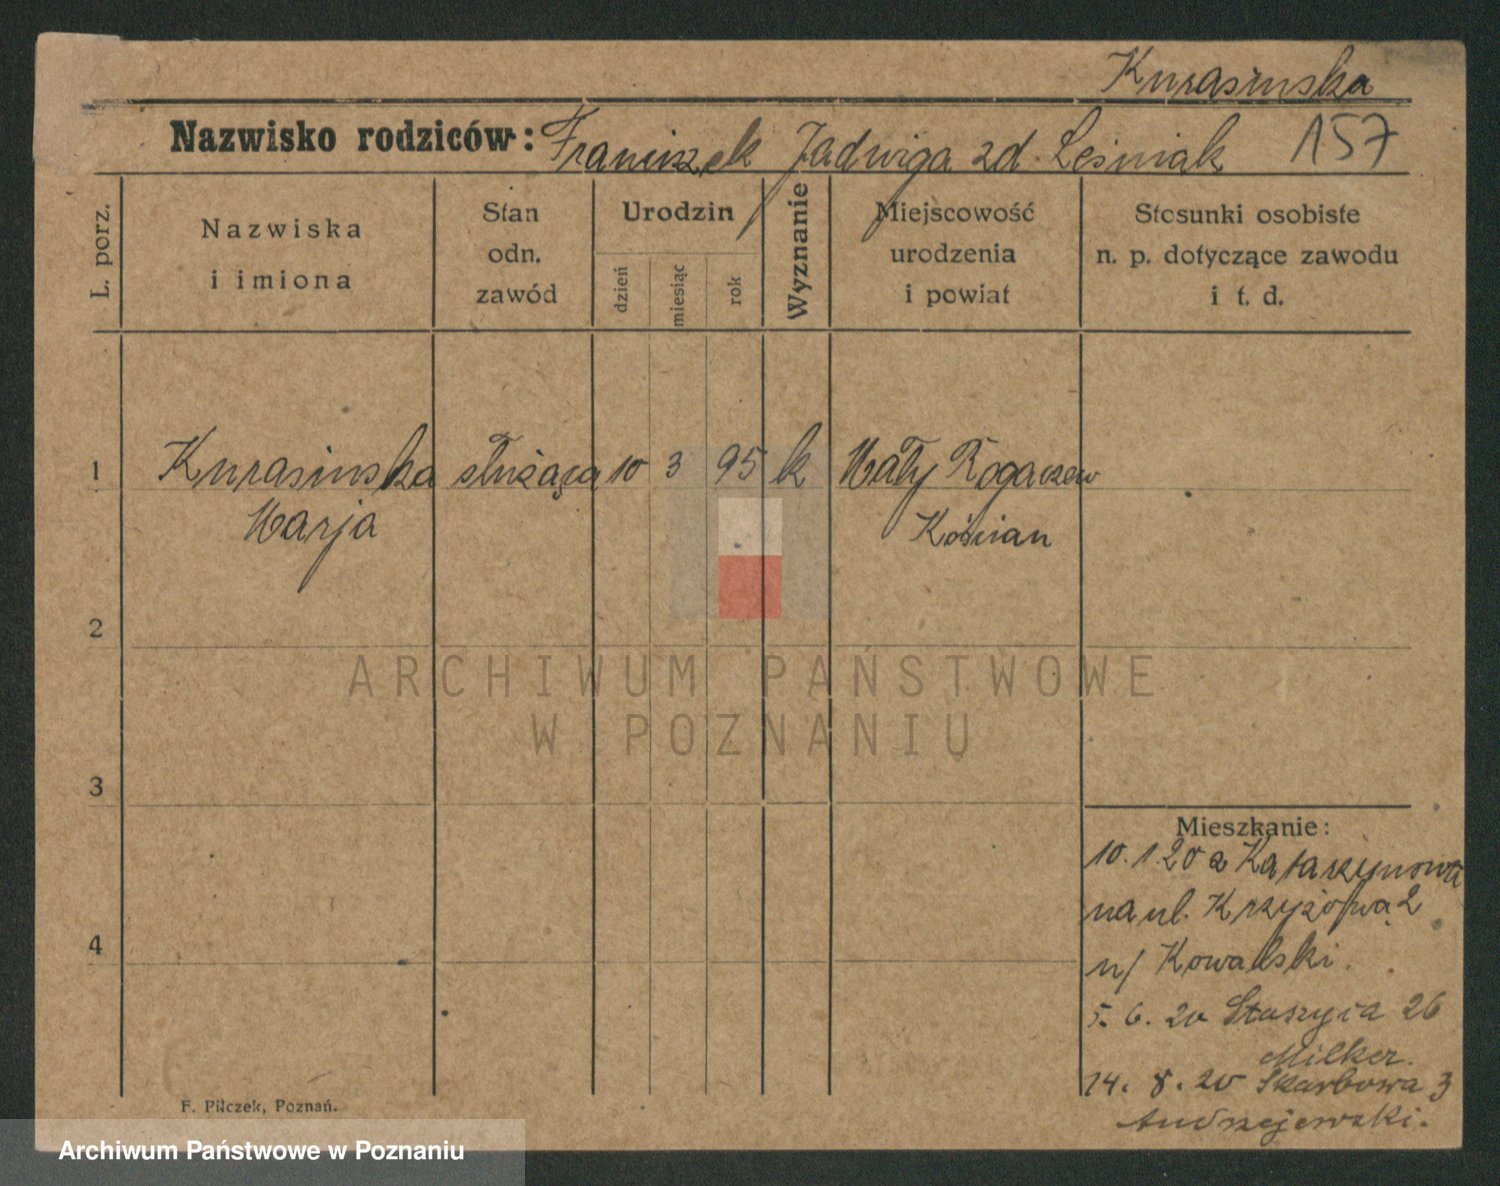 Kurasinska
Nazwisko rodziców: Franciszek Jadwiga zd. Leśniak 157
L. porz.
Nazwiska
i imiona
Stan
odn.
zawód
Urodzin
dzień
miesiąc
rok
Wyznanie
Miejscowość
urodzenia
i powiat
Stosunki osobiste
n. p. dotyczące zawodu
i t. d.
1 Kurasinska służąca 10 3 95 k Mały Rogaczew
Marja Kościan
2
3
4
Mieszkanie:
10.1.20 z Katarzynowa
na ul. Krzyżową 2
n/ Kowalski.
5.6.20 Staszyca 26
Milker.
14.8.20 Skarbowa 3
Andrzejewski.
F. Pilczek, Poznań.
ARCHIWUM PAŃSTWOWE
W POZNANIU
Archiwum Państwowe w Poznaniu